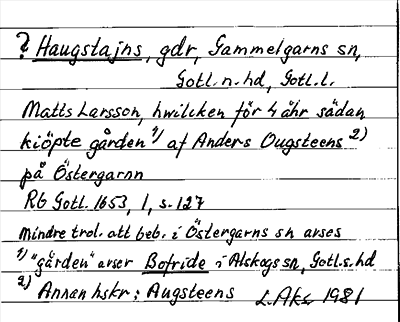 ? Haugstajns, gdr, Gammelgarns sn,
Gotl. n. hd, Gotl. l.
Matts Larsson, hwilcken för 4 åhr sädan
kiöpte gården 1) af Anders Ougsteens 2)
på Östergarnn
RG Gotl. 1653, 1, s. 127
mindre trol. att beb. i Östergarns sn avses
1) "gården" avser Bofride i Alskogs sn, Gotl. s. hd
2) Annan hskr: Augsteens L. Aks 1981